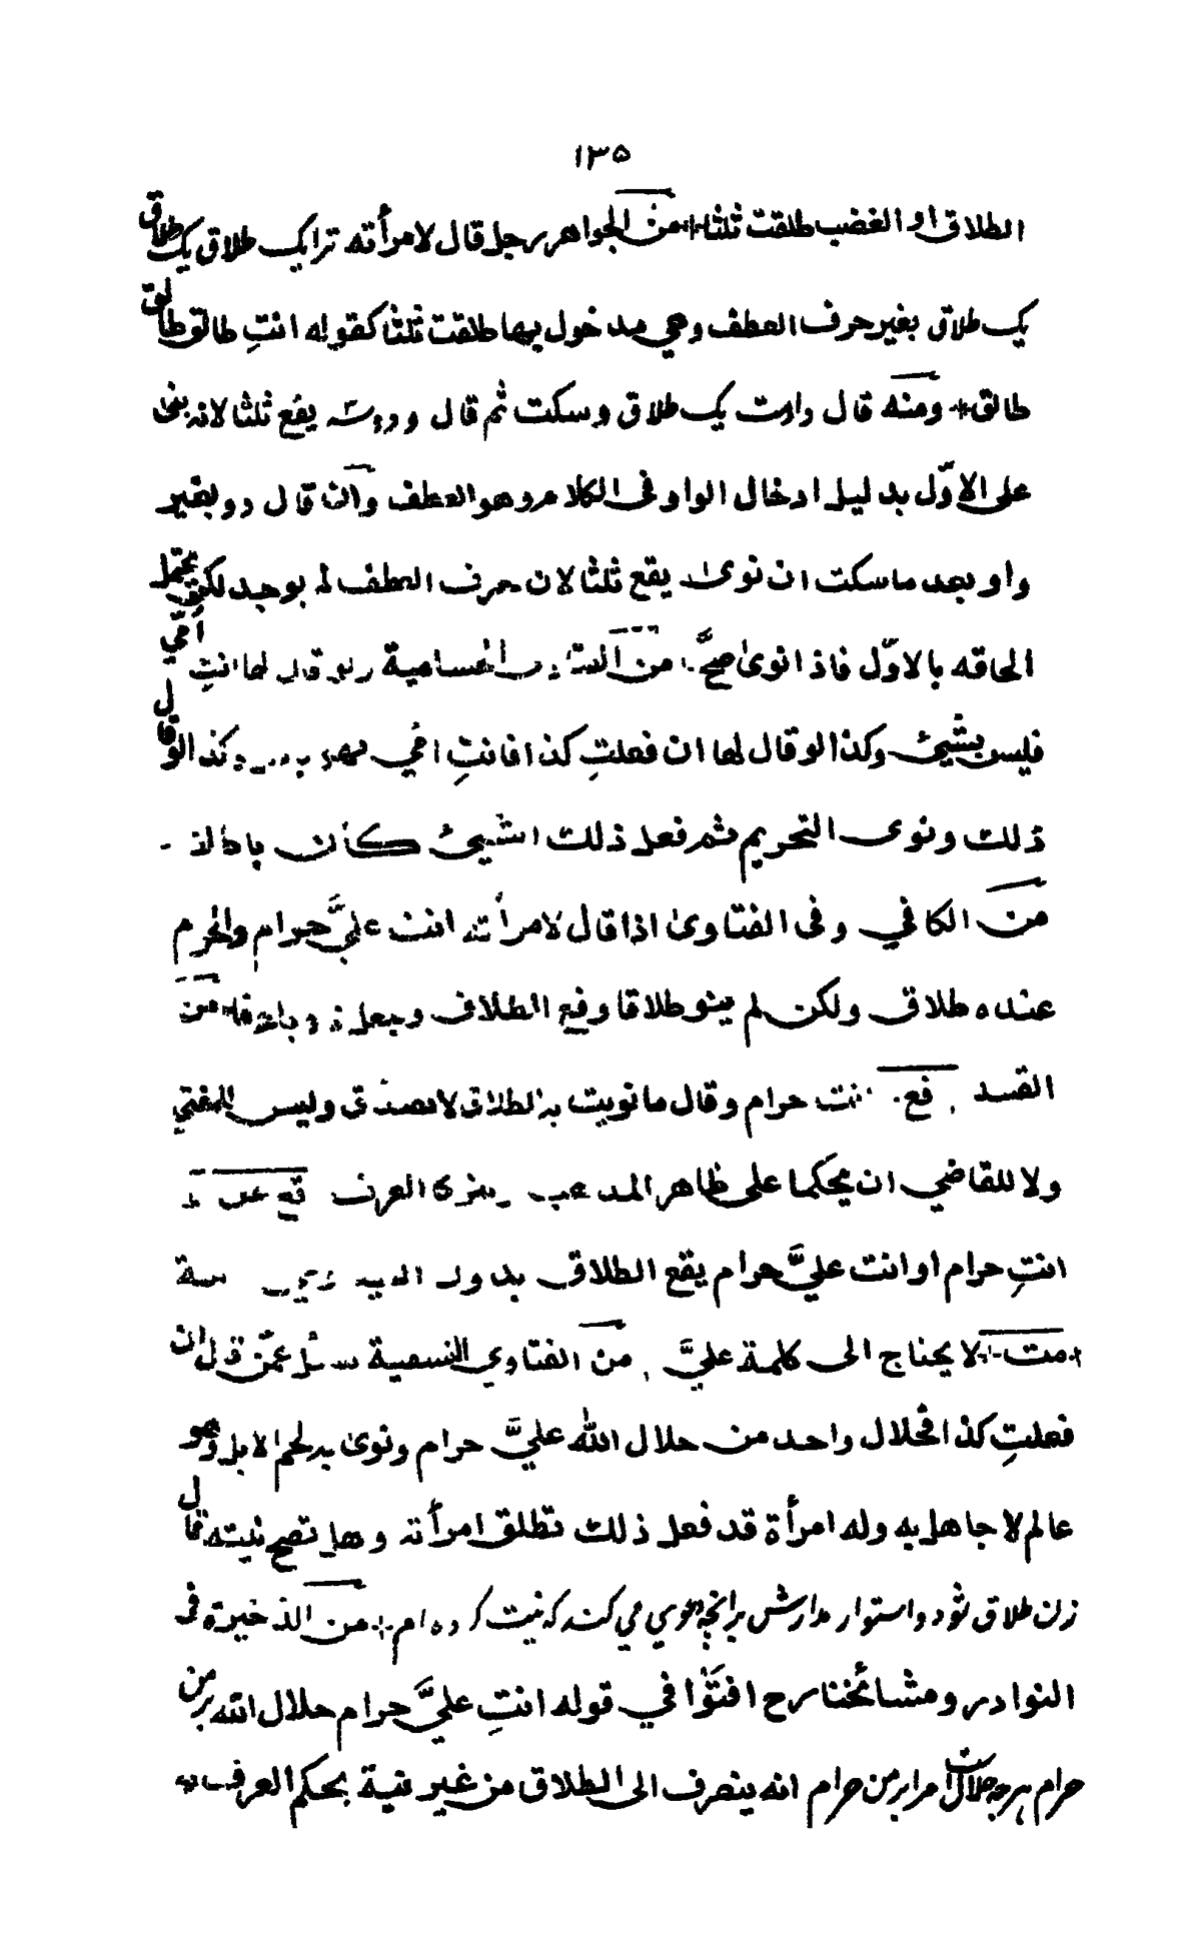 ١٣٥
الطلاق او الغضب طلقت ثلثا * من الجواهر رجل قال لامرأته ترا يک طلاق يک طلاق
يک طلاق بغير حرف العطف وهي مدخول بها طلقت ثلثا كقوله انتِ طالق طالق
طالق * ومنه قال دادمت يک طلاق وسكت ثم قال ودو يقع ثلثا لانه بنى
على الاوّل بدليل ادخال الواو فى الكلام وهو العطف وان قال دو بغير
واو بعد ما سكت ان نوىٰ يقع ثلثا لان حرف العطف لم يوجد لكن يحتمل
الحاقه بالاوّل فاذا نوىٰ صحَّ من الحسامية قال لها انتِ أمّي
فليس بشيئ وكذا لو قال لها ان فعلتِ كذا فانتِ امّي وكذا لو قال
ذلك ونوى التحريم ثم فعل ذلك الشيئ كان باطلا
من الكافي وفى الفتاوىٰ اذا قال لامرأته انت عليَّ حرام والحرم
عنده طلاق ولكن لم ينو طلاقا وقع الطلاق ويجعل من
فع انت حرام وقال ما نويت به الطلاق لا يصدق وليس للمفتي
ولا للقاضي ان يحكما على ظاهر المذهب ويترك العرف قع
انتِ حرام او انت عليَّ حرام يقع الطلاق بدون
مت لا يحتاج الى كلمة عليَّ من الفتاوي النسفية سئل عمّن قال ان
فعلتِ كذا فحلال واحد من حلال الله عليَّ حرام ونوىٰ به لحم الابل وهو
عالم لا جاهل به وله امرأة قد فعل ذلك تطلق امرأته وهل تصح نيته قال
زن طلاق شود واستوار مدارش برانچه دعوي مي كند كه نيت كرده ام * من الذخيرة فى
النوادر ومشائخنا رح افتوٰا في قوله انتِ عليَّ حرام حلال الله بر من
حرام هرچه حلال است مرا بر من حرام انه ينصرف الى الطلاق من غير نية بحكم العرف